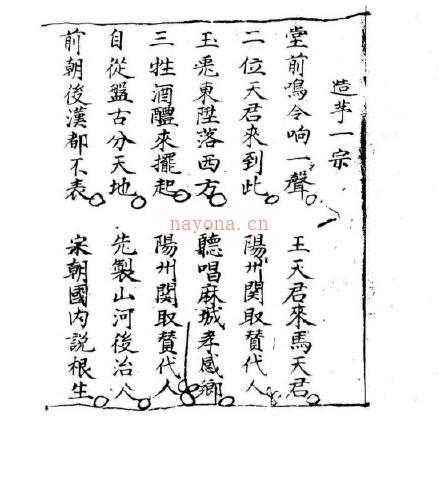 造茅一宗
堂前鳴令响一聲 王天君來馬天君
二位天君來到此 陽州関取賛代人
玉兎東陞落西方 聽唱麻城孝感鄉
三牲酒醴來擺起 陽州関取賛代人
自從盤古分天地 先製山河後治人
前朝後漢都不表 宋朝國内説根生
nayona.cn